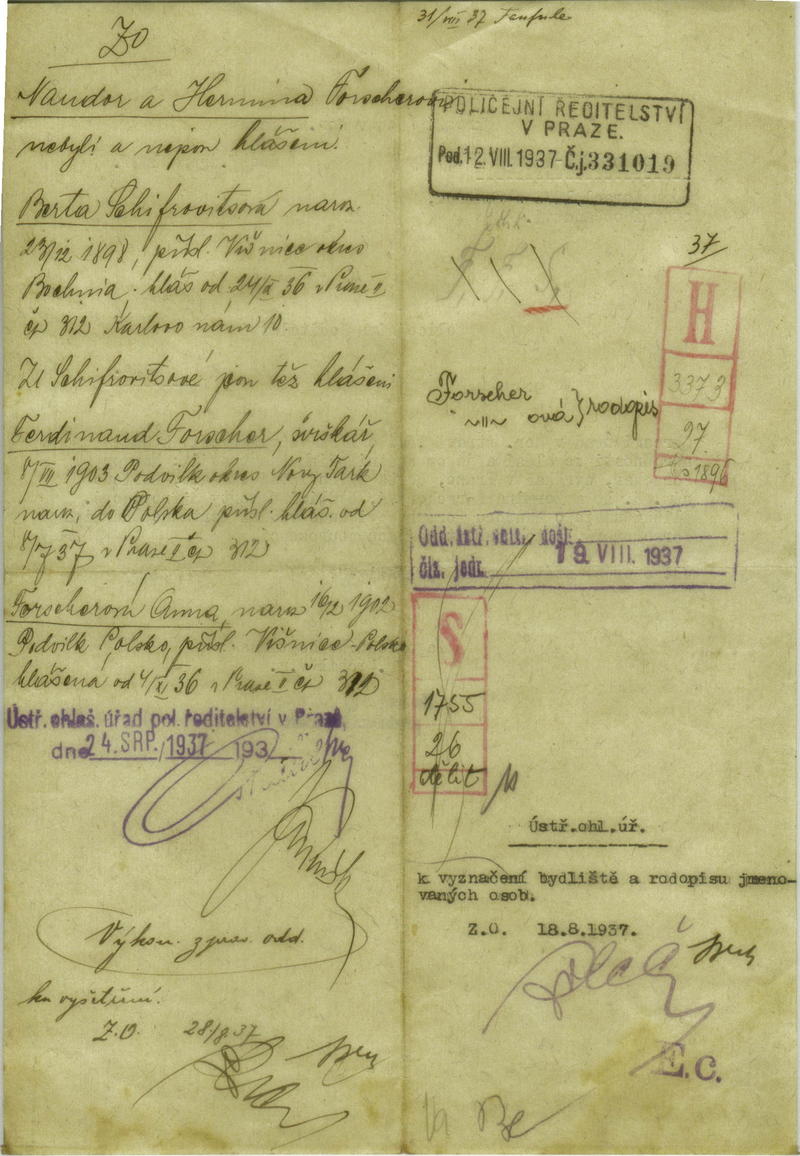 ZO
Nandor a Hermina Forscherovi
nebyli a nejsou hlášeni.
Berta Schifrovitsová naroz.
23/12 1898, přísl. Višnice okres
Bochnia, hláš. od 24/X 36 v Praze II
čp 312 Karlovo nám 10.
Schifrovitsové jsou též hlášeni
Ferdinand Forscher,
8/VIII 1903 Podvilk okres Nový Tark
naroz, do Polska přísl. hláš. od
8/7 37 v Praze II čp 312
Forscherová Anna, naroz 16/2 1902
Podvilk Polsko, přísl. Višnice-Polsko
hlášená od 4/XI 36 v Praze II čp 312
Ústř. ohlaš. úřad pol. ředitelství v Praze,
dne 24. SRP. 1937 193
Výkon. zprav. odd.
ku vyšetření.
Z.O. 28/8 37
31/VIII 37
POLICEJNÍ ŘEDITELSTVÍ
V PRAZE.
Pod. 12. VIII. 1937 Č.j. 331019
37
H
3373
27
1896
Forscher
-"- ová } rodopis
Odd. ústř. došl.
19. VIII. 1937
čís. jedn.
S
1755
26
dělit
Ústř.ohl.úř.
k vyznačení bydliště a rodopisu jmeno-
vaných osob.
Z.O. 18.8.1937.
E.c.